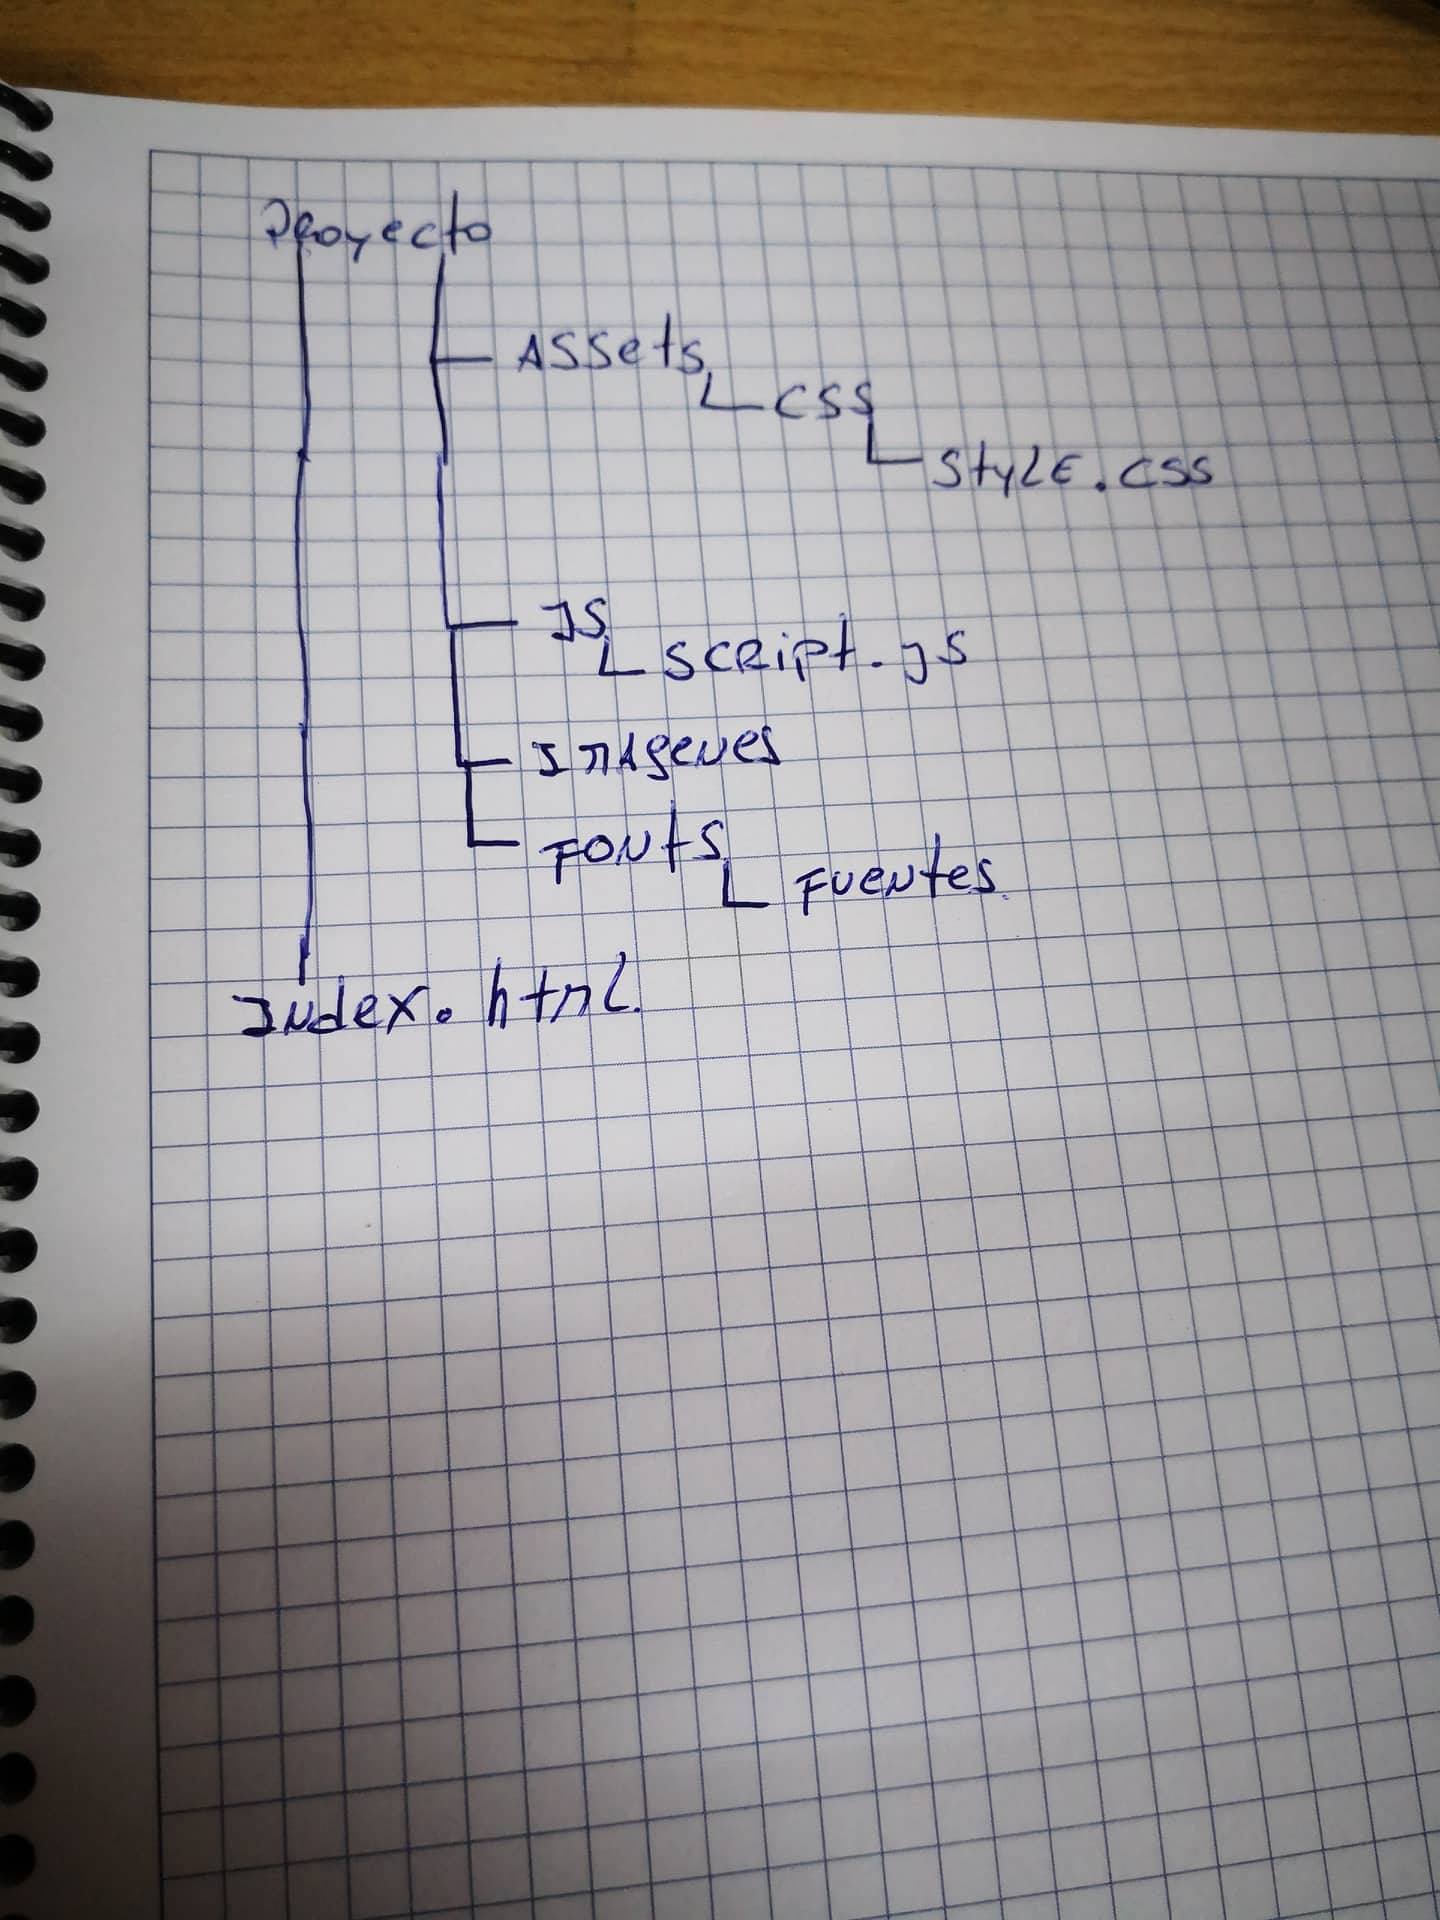 Proyecto
Assets
css
Style.css
JS
script.js
Imagenes
Fonts
Fuentes
Index.html